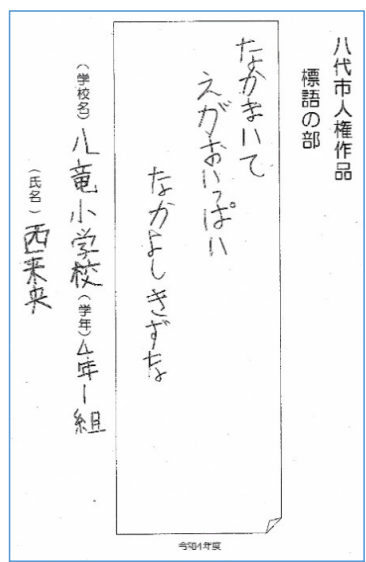 八代市人権作品
標語の部
なかまいて
えがおいっぱい
なかよしきずな
(学校名)八竜小学校(学年)4年1組
(氏名)西未来
令和4年度